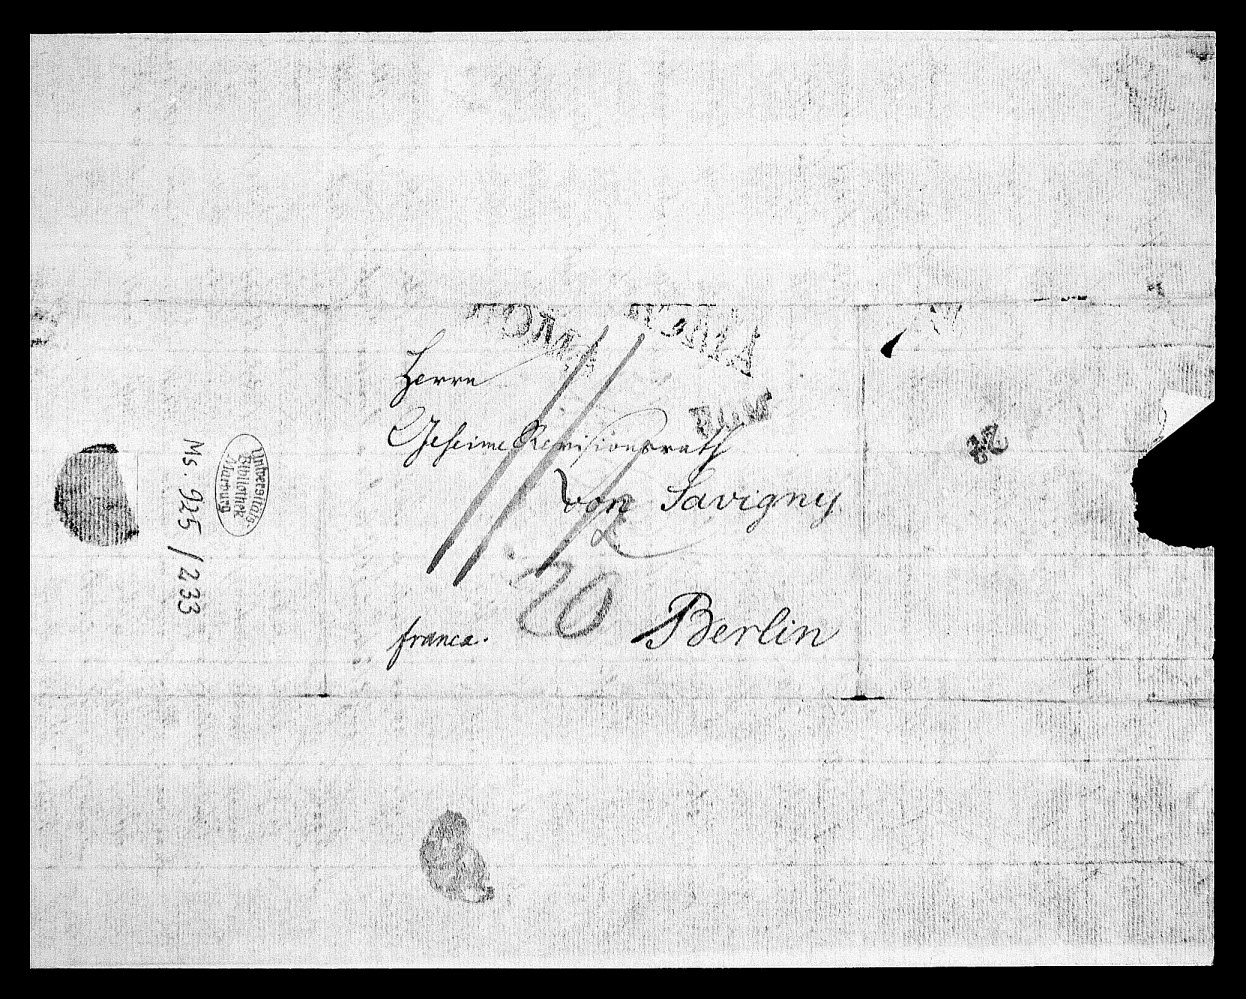 Herrn
Geheime Revisionsrath
von Savigny
20
franca.
Berlin
Universitäts-
Bibliothek
Marburg
Ms. 925 / 233